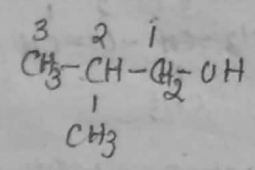 3 2 1
CH3-CH-CH2-OH
CH3